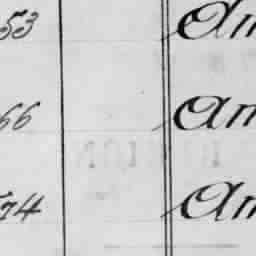 53 Am
66 Am
74 Am